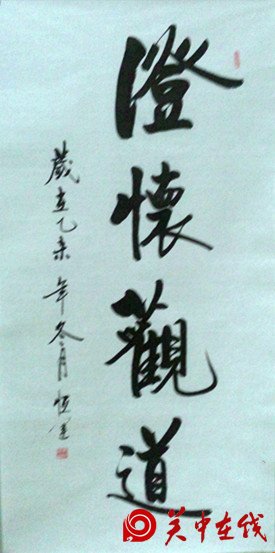 澄懷觀道
歲在乙未年冬月恒
关中在线